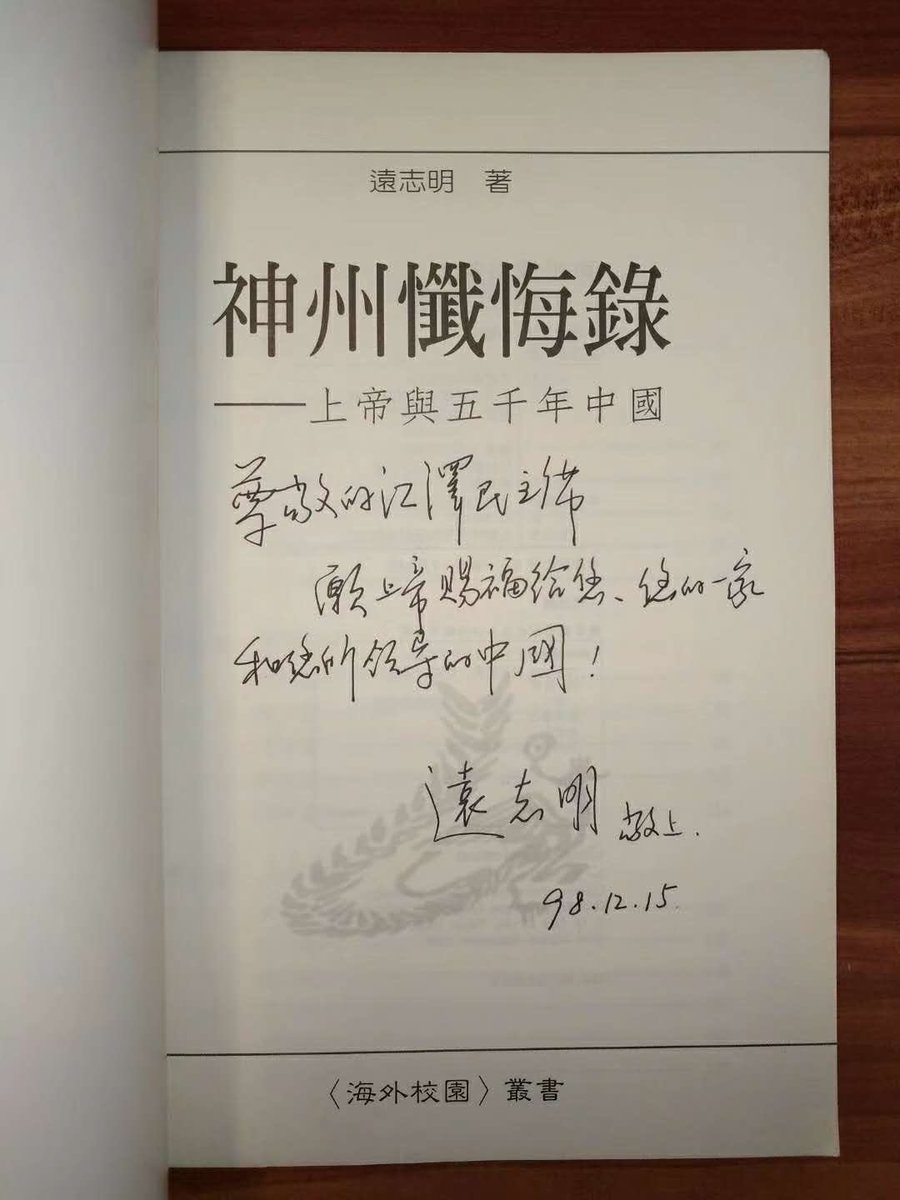 遠志明　著
神州懺悔錄
——上帝與五千年中國
尊敬的江澤民主席
願上帝賜福給您、您的一家
和您所领导的中國！
遠志明 敬上.
98.12.15.
〈海外校園〉叢書